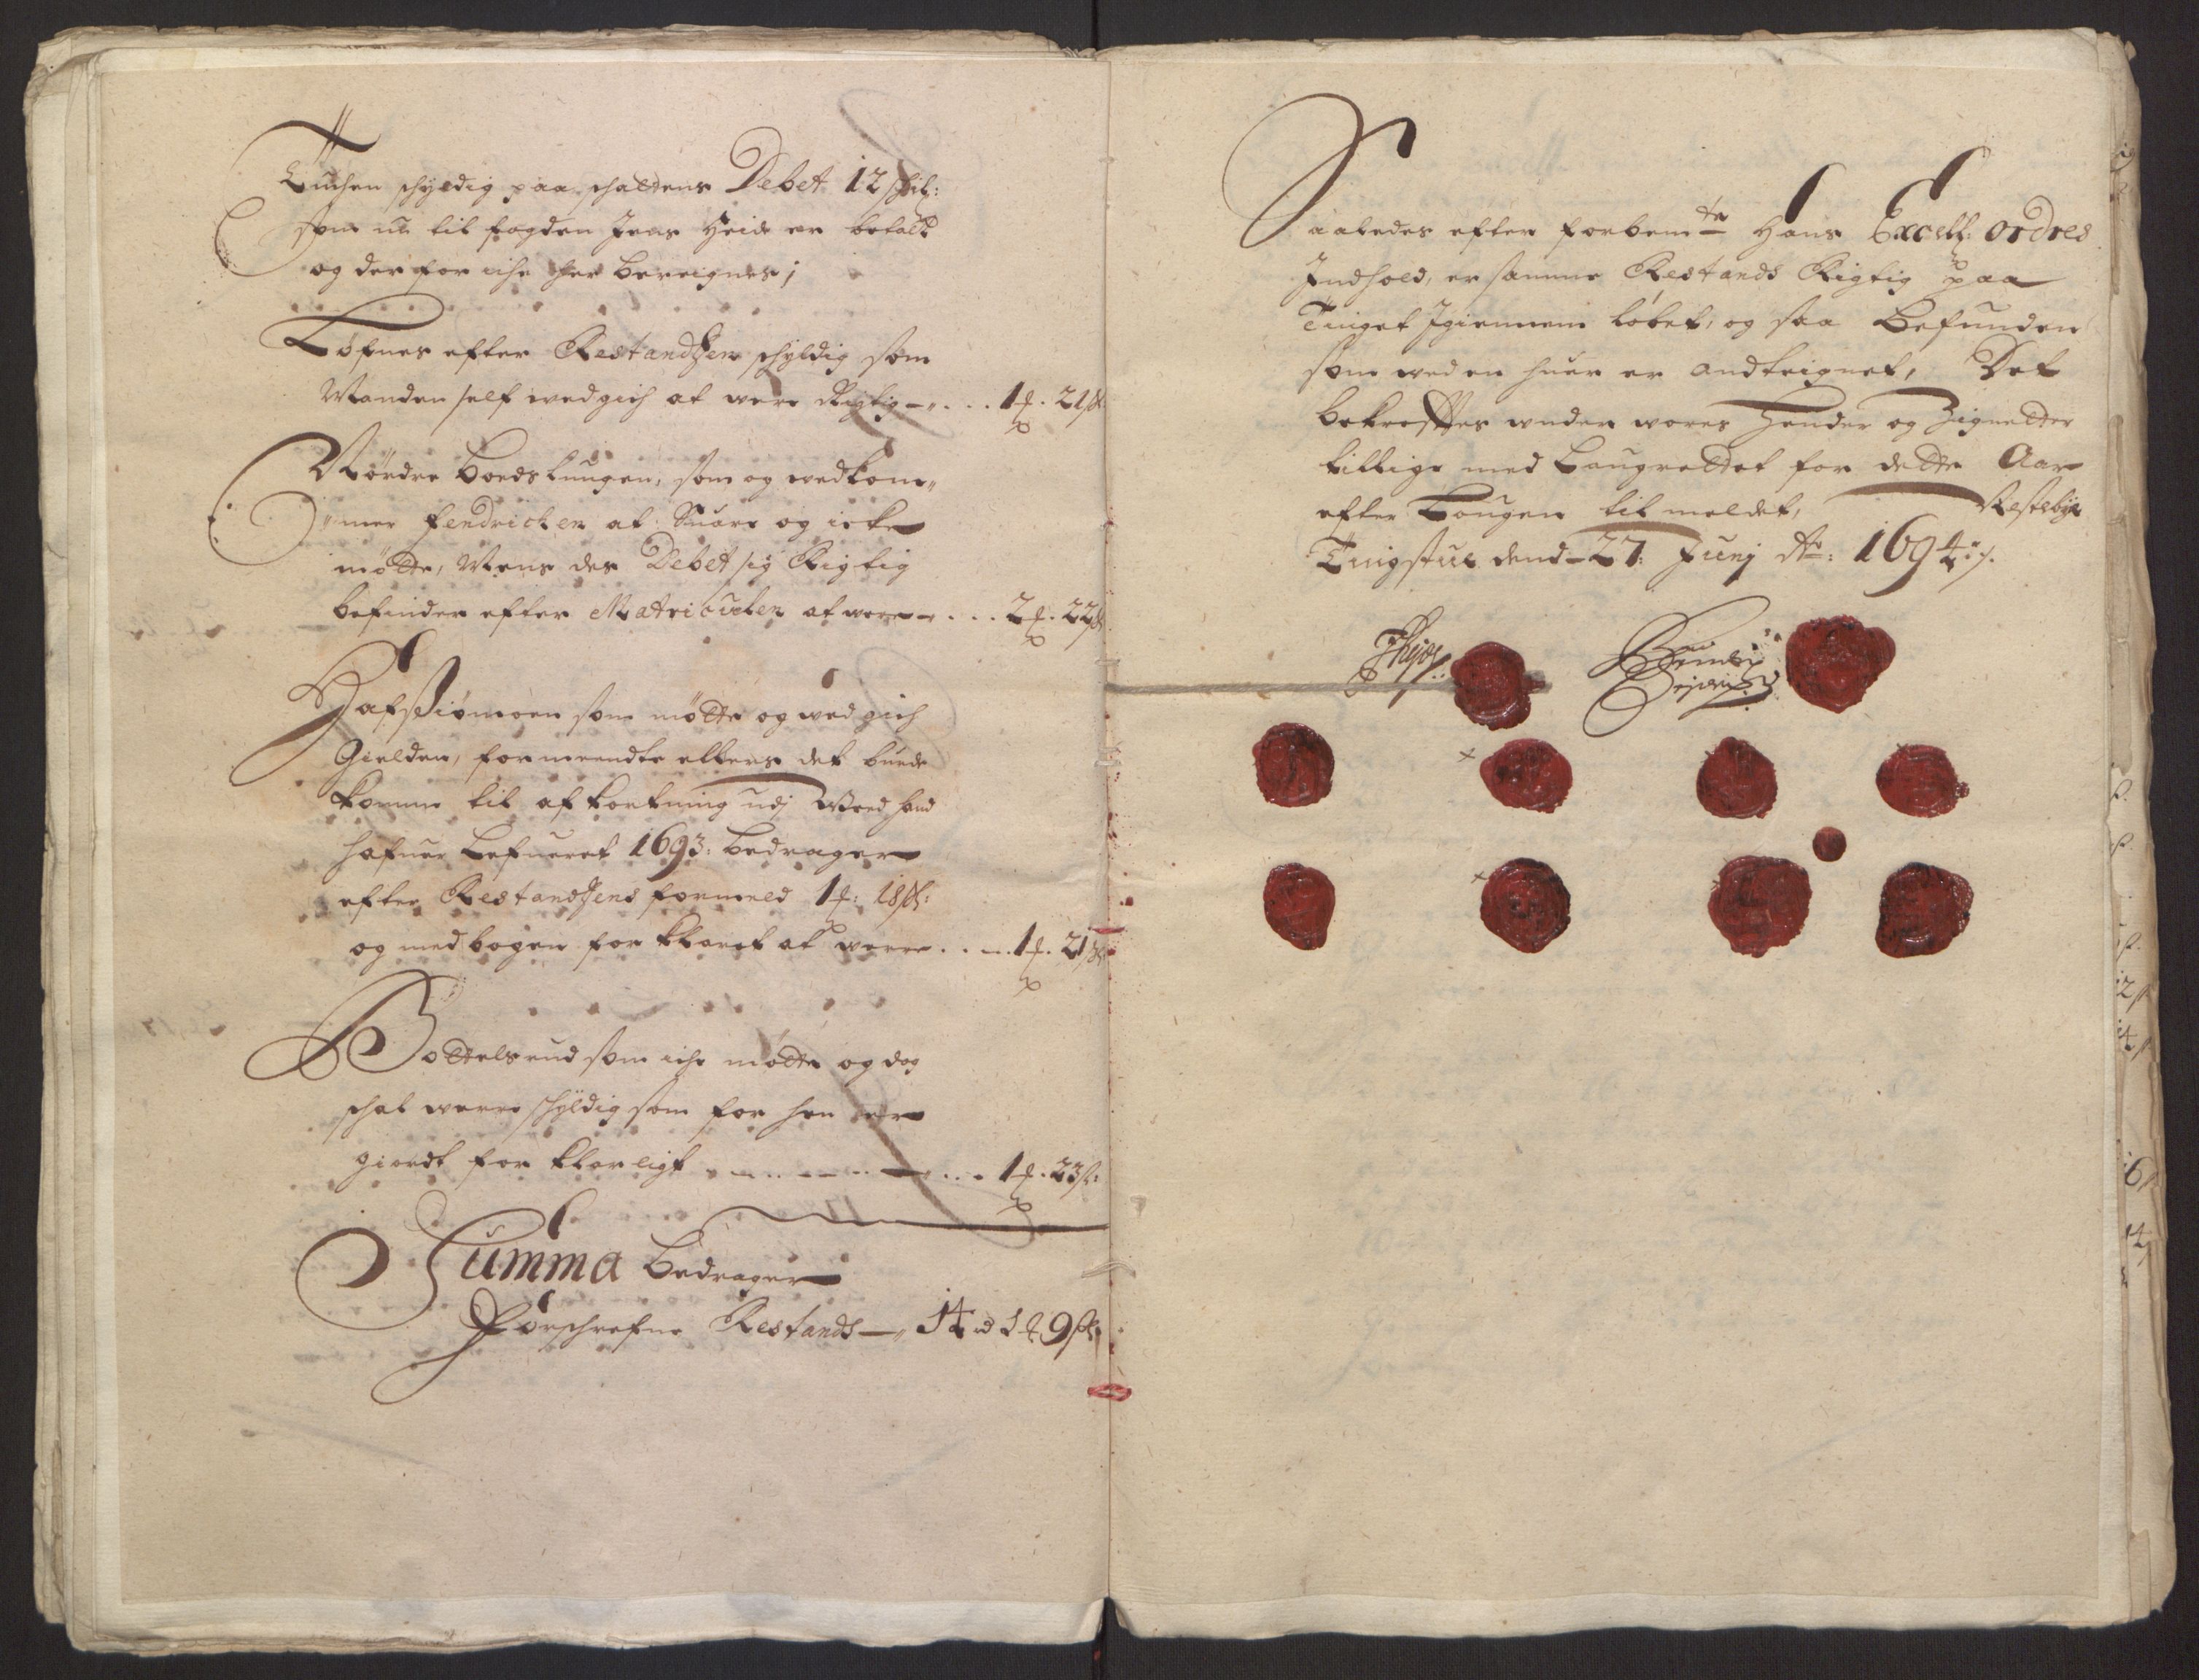 Tuchen schyldig paa schattens Debet 12 schil:
som nu til fogden Jens Heide er betalt
og der for iche her bereignes;
Tøfnes efter Restandzen schyldig som
Manden self wedgich at were Rigtig - . . . 1 ƒ. 21 ß
Nordre bords luugen, som og wedkom„
„mer fendrichen at Suare og icke
møtte, Mens des Debet sig Rigtig
befinder efter Matriculen at were - . . . 2 ƒ. 22 ß
som møtte og wed gich
Gielden, formeendte ellers det burde
komme til af kortning udj hand
hafuer Lefueret 1693: bedrager
efter Restandzens formeld 1 ƒ: 18 ß:
og med bogen for klaret at werre . . . 1 ƒ. 21 ß
Bottelsrud som iche møtte og dog
schal werre schyldig som for hen er
giordt for klarligt . . . 1 ƒ. 23 ß:
Summa bedrager
Forschrefne Restands — 14 rd 1 ƒ 9 ß
Saaledes efter forbemte Hans Excell: ordres
Indhold, er samme Restands Rigtig paa
Tinget Igiennem løbet, og saa befunden
som wed en huer er andteignet, Det
bekreftes under wores Hender og Zignetter
tillige med Laugrettet for dette Aar
efter Lougen til meldet,
Tingstue dend 27: Junj Ao: 1694 ./.